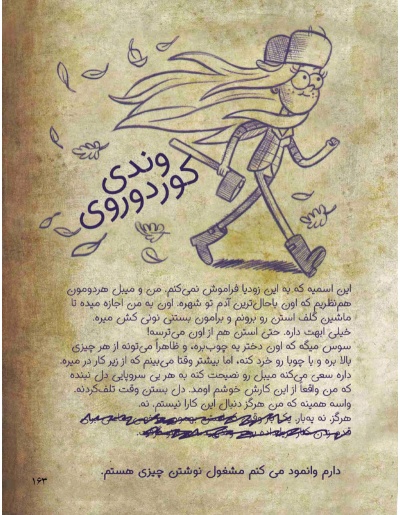 وندی
کوردوروی
این اسمیه که به این زودیا فراموش نمی‌کنم. من و میبل هردومون
هم‌نظریم که اون باحال‌ترین آدم تو شهره. اون به من اجازه میده تا
ماشین گلف استن رو برونم و برامون بستنی نونی کش میره.
خیلی ابهت داره. حتی استن هم از اون می‌ترسه!
سوس میگه که اون دختر یه چوب‌بره، و ظاهراً می‌تونه از هر چیزی
بالا بره و با چوبا رو خرد کنه، اما بیشتر وقتا می‌بینم که از زیر کار در میره.
داره سعی می‌کنه میبل رو نصیحت کنه به هر بی سروپایی دل نبنده
که من واقعاً از این کارش خوشم اومد. دل بستن وقت تلف‌کردنه.
واسه همینه که من هرگز دنبال این کارا نیستم. نه.
هرگز. نه یه‌بار.
دارم وانمود می کنم مشغول نوشتن چیزی هستم.
۱۶۳